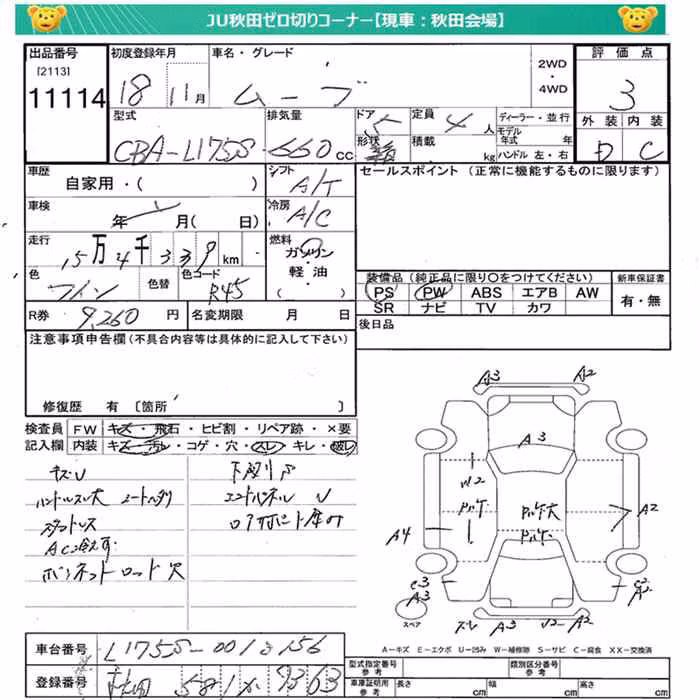 JU秋田ゼロ切りコーナー【現車：秋田会場】
出品番号 初度登録年月 車名・グレード 2WD・4WD 評価点
[2113]
11114 18 11月 ムーブ 3
型式 排気量 ドア 5 定員 4 人 ディーラー・並行 外装 内装
CBA-L175S 660cc 形状 積載 kg モデル年式 年 ハンドル 左・右 D C
車歴 シフト セールスポイント (正常に機能するものに限ります)
自家用・( ) A/T
車検 年 月( 日) 冷房 A/C
走行 15万4千339km 燃料 ガソリン・軽油・( )
色 ワイン 色替 色コード R45
装備品(純正品に限り○をつけてください) 新車保証書
PS PW ABS エアB AW 有・無
SR ナビ TV カワ
R券 9,260円 名変期限 月 日 後日品
注意事項申告欄(不具合内容等は具体的に記入して下さい)
修復歴 有 〔箇所 〕
検査員記入欄 FW キズ・飛石・ヒビ割・リペア跡・×要
内装 キズ・汚レ・コゲ・穴・スレ・キレ・破レ
キズU 下廻りS
ハンドルスレ大 シートヘタリ エンドパネル U
スタッドレス
AC冷え不
ボンネットロッド 欠
A3 A2
A3
W2
A2
A4
A3 A2
スペア スレ A3 U2 A2
A－キズ E－エクボ U－凹み W－補修跡 S－サビ C－腐食 XX－交換済
車台番号 L175S-0013156
登録番号 秋田 581 93 03
型式指定番号 参考 類別区分番号 参考
車庫証明用 参考 長さ cm 幅 cm 高さ cm